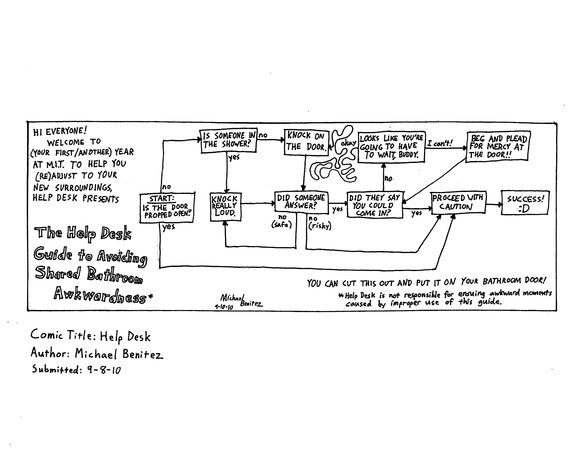 HI EVERYONE!
WELCOME TO
(YOUR FIRST/ANOTHER) YEAR
AT M.I.T. TO HELP YOU
(RE)ADJUST TO YOUR
NEW SURROUNDINGS,
HELP DESK PRESENTS
The Help Desk
Guide to Avoiding
Shared Bathroom
Awkwardness*
START:
IS THE DOOR
PROPPED OPEN?
no
yes
IS SOMEONE IN
THE SHOWER?
no
yes
KNOCK ON
THE DOOR.
okay
KNOCK
REALLY
LOUD.
DID SOMEONE
ANSWER?
yes
no
(safe)
no
(risky)
LOOKS LIKE YOU'RE
GOING TO HAVE
TO WAIT, BUDDY.
I can't!
BEG AND PLEAD
FOR MERCY AT
THE DOOR!!
DID THEY SAY
YOU COULD
COME IN?
no
yes
PROCEED WITH
CAUTION
SUCCESS!
:D
Michael
Benitez
9-10-10
YOU CAN CUT THIS OUT AND PUT IT ON YOUR BATHROOM DOOR!
*Help Desk is not responsible for ensuing awkward moments
caused by improper use of this guide.
Comic Title: Help Desk
Author: Michael Benitez
Submitted: 9-8-10